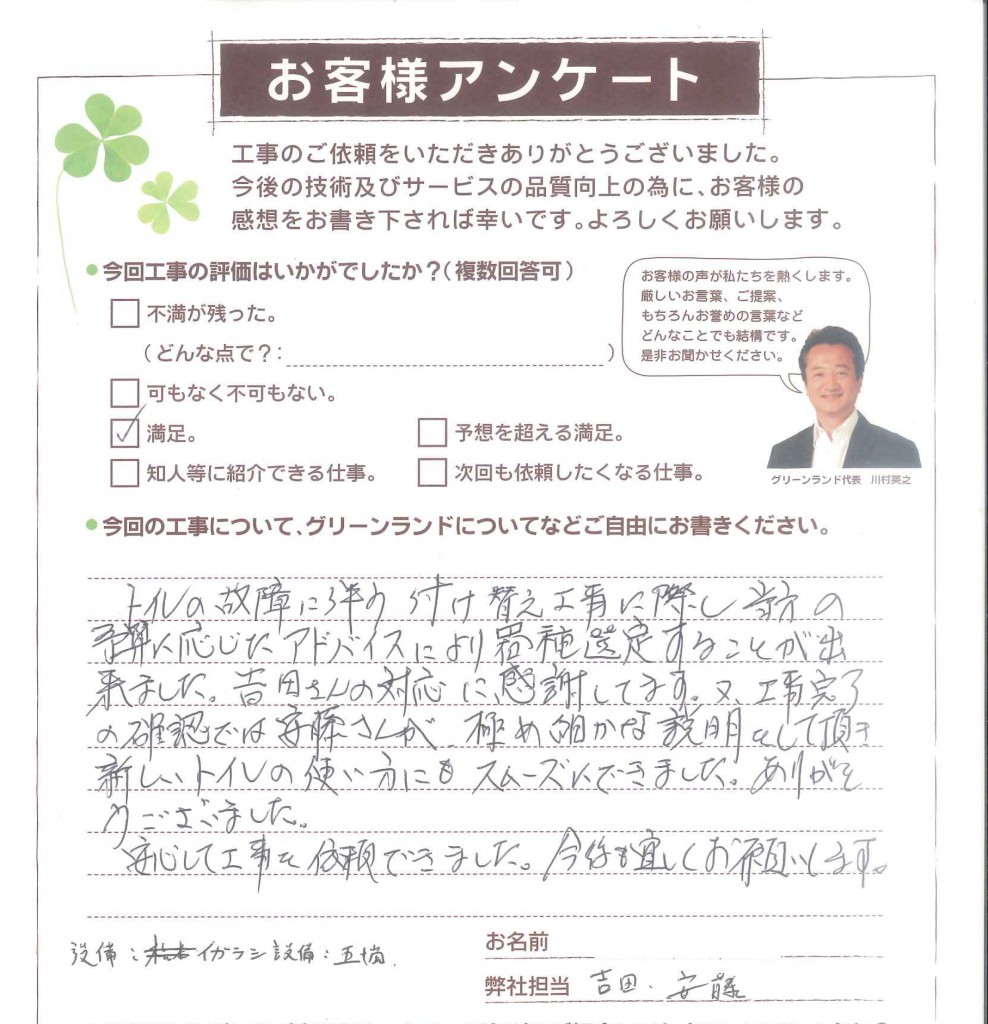 お客様アンケート
工事のご依頼をいただきありがとうございました。
今後の技術及びサービスの品質向上の為に、お客様の
感想をお書き下されば幸いです。よろしくお願いします。
●今回工事の評価はいかがでしたか？（複数回答可）
不満が残った。
（どんな点で？：　　）
可もなく不可もない。
満足。
予想を超える満足。
知人等に紹介できる仕事。
次回も依頼したくなる仕事。
お客様の声が私たちを熱くします。
厳しいお言葉、ご提案、
もちろんお誉めの言葉など
どんなことでも結構です。
是非お聞かせください。
グリーンランド代表　川村英之
●今回の工事について、グリーンランドについてなどご自由にお書きください。
トイレの故障に伴う付け替え工事に際し当方の
予算に応じたアドバイスにより器種選定することが出
来ました。吉田さんの対応に感謝してます。又、工事完了
の確認では安藤さんが極め細かな説明をして頂き
新しいトイレの使い方にもスムーズにできました。ありがと
うございました。
安心して工事を依頼できました。今後も宜しくお願いします。
設備：イガラシ設備：五
お名前
弊社担当　吉田・安藤